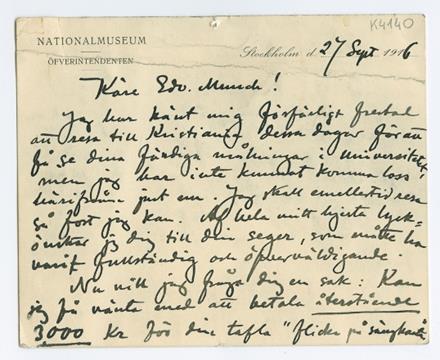 K4140
NATIONALMUSEUM
ÖFVERINTENDENTEN
Stockholm d. 27 Sept 1916
Käre Edv. Munch!
Jag har känt mig förfärligt frestad
att resa till Kristiania dessa dagar för att
få se dina färdiga målningar i Universitetet
men jag har inte kunnat komma loss
härifrån just nu. Jag skall emellertid resa
så fort jag kan. Af hela mitt hjerta lyck-
önskar jag dig till din seger, som måtte ha
varit fullständig och öfverväldigande.
Nu vill jag fråga dig en sak: Kan
jag få vänta med att betala återstående
3000 Kr för din tafla "flicka på sängkant